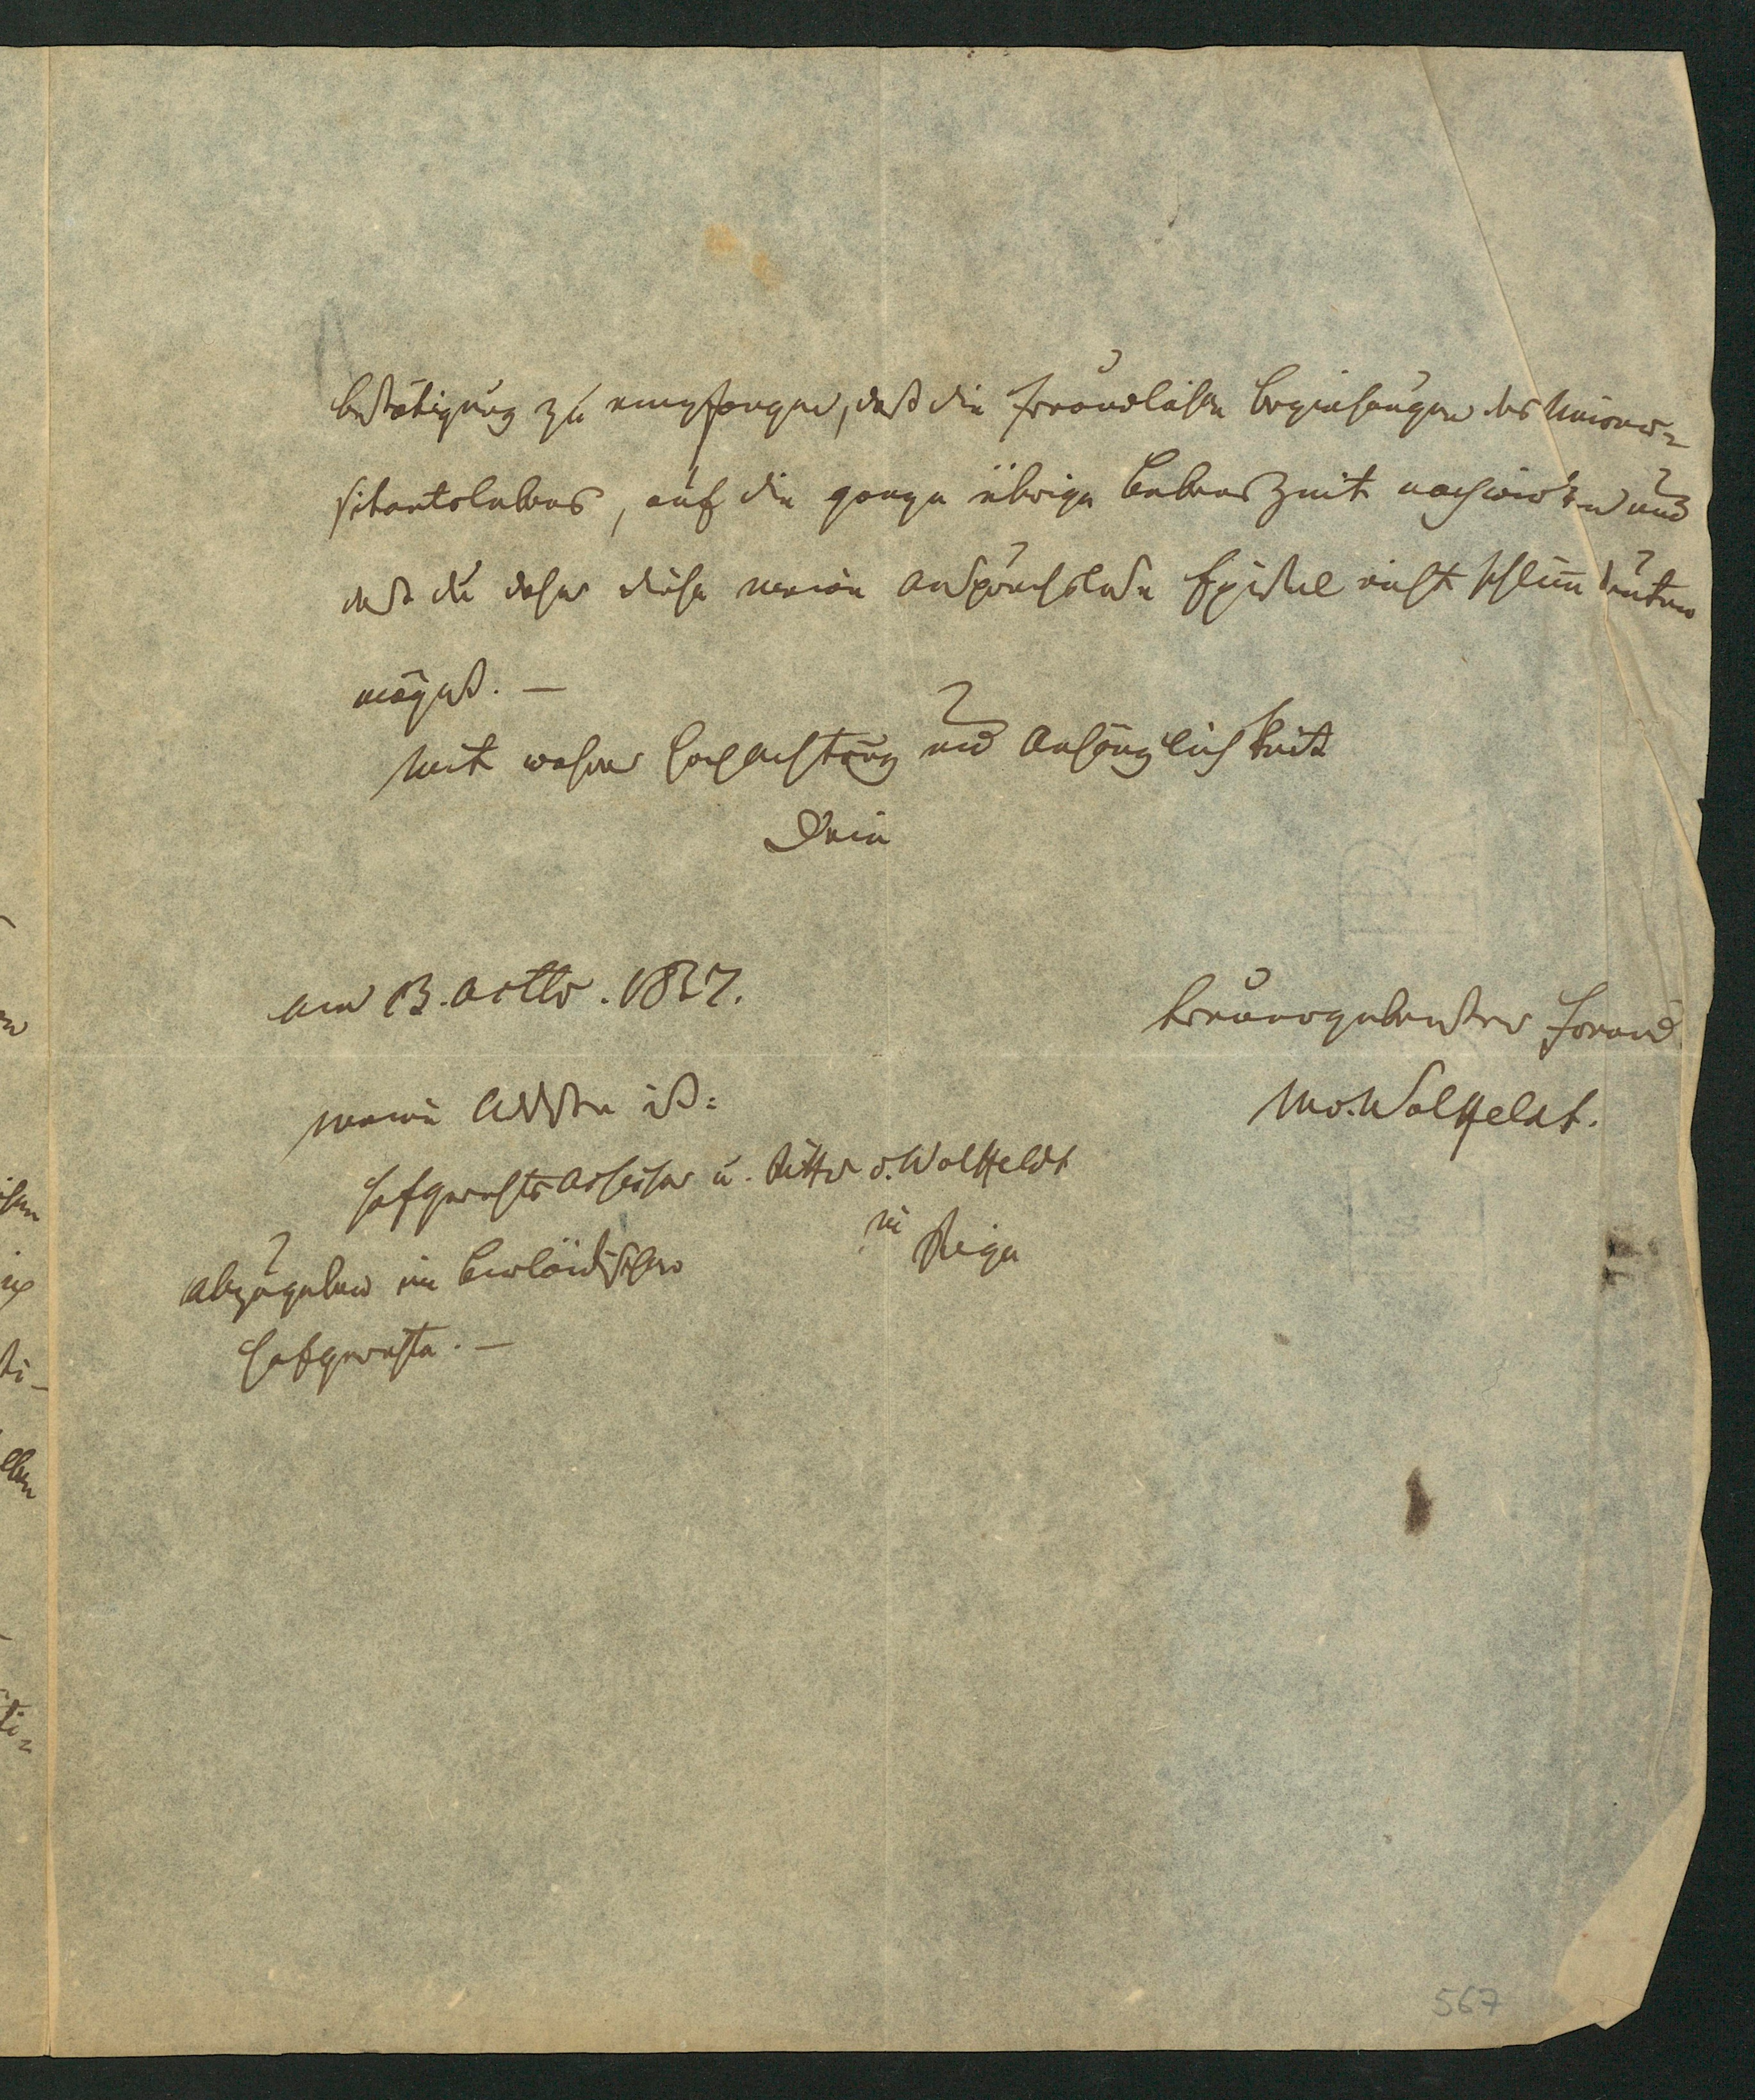 bestätigung zu empfangen, daß die freundlichen Beziehungen des Univer-
sitaetslebens, auf die ganze übrige Lebenszeit nachwirken und
daß du daher diese meine anspruchslose Epistel nicht schlim̅ deuten
mögest. —
Mit wahrer Hochachtung und Anhänglichkeit
Dein
am 13. Octbr. 1837.
treuergebenster Freund
M. v. Wolffeldt.
meine Addresse ist:
Hofgerichts Assessor u. Ritter v. Wolffeldt
in Riga
abzugeben im Livländischen
Hofgerichte. —
567